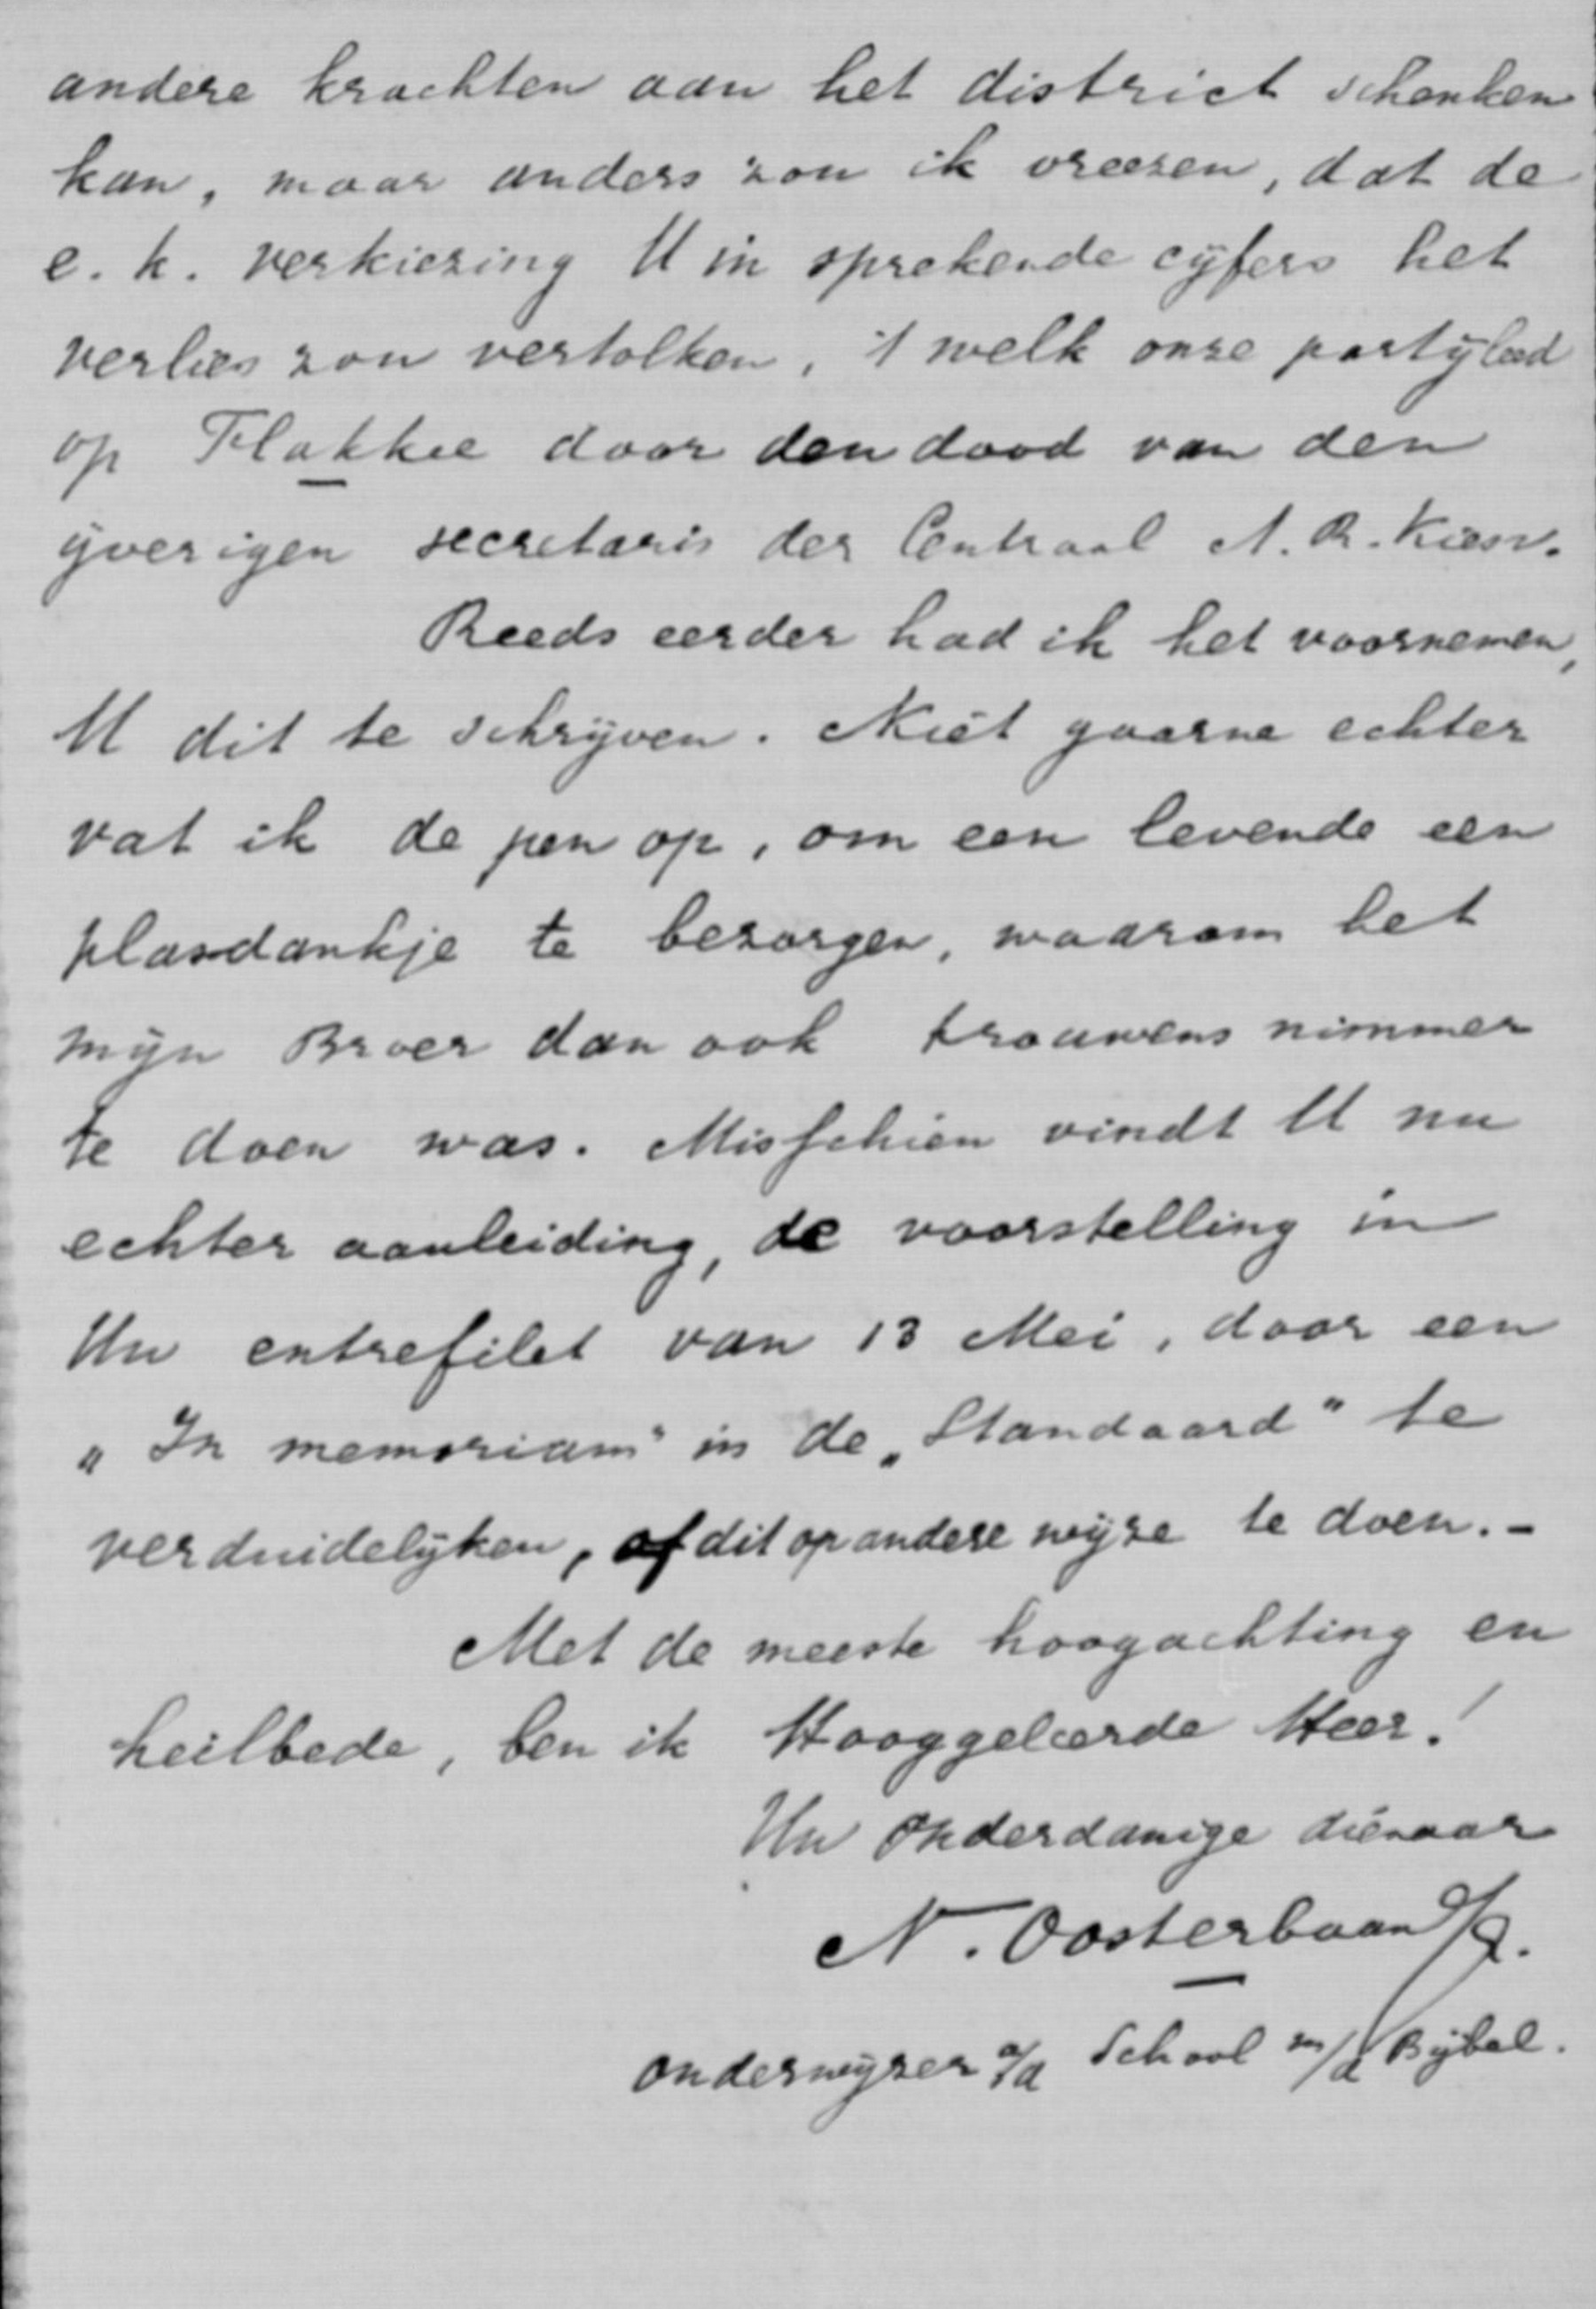 andere krachten aan het district schenken
kan, maar anders zou ik vreezen, dat de
e. k. verkiezing U in sprekende cijfers het
verlies zou vertolken, 't welk onze partij leed
op Flakkee door den dood van den
ijverigen secretaris der Centraal A. R. Kiesv.
Reeds eerder had ik het voornemen,
U dit te schrijven. Niet gaarne echter
vat ik de pen op, om een levende een
plasdankje te bezorgen, waarom het
mijn Broer dan ook trouwens nimmer
te doen was. Misschien vindt U nu
echter aanleiding, de voorstelling in
Uw entrefilet van 13 Mei, door een
„In memoriam" in de „Standaard" te
verduidelijken, of dit op andere wijze te doen. -
Met de meeste hoogachting en
heilbede, ben ik Hooggeleerde Heer!
Uw Onderdanige dienaar
N. Oosterbaan
onderwijzer a/d School m/d Bijbel.